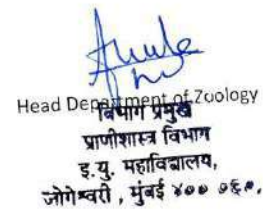 Head Department of Zoology
विभाग प्रमुख
प्राणीशास्त्र विभाग
इ.यु. महाविद्यालय,
जोगेश्वरी , मुंबई ४०० ०६०.